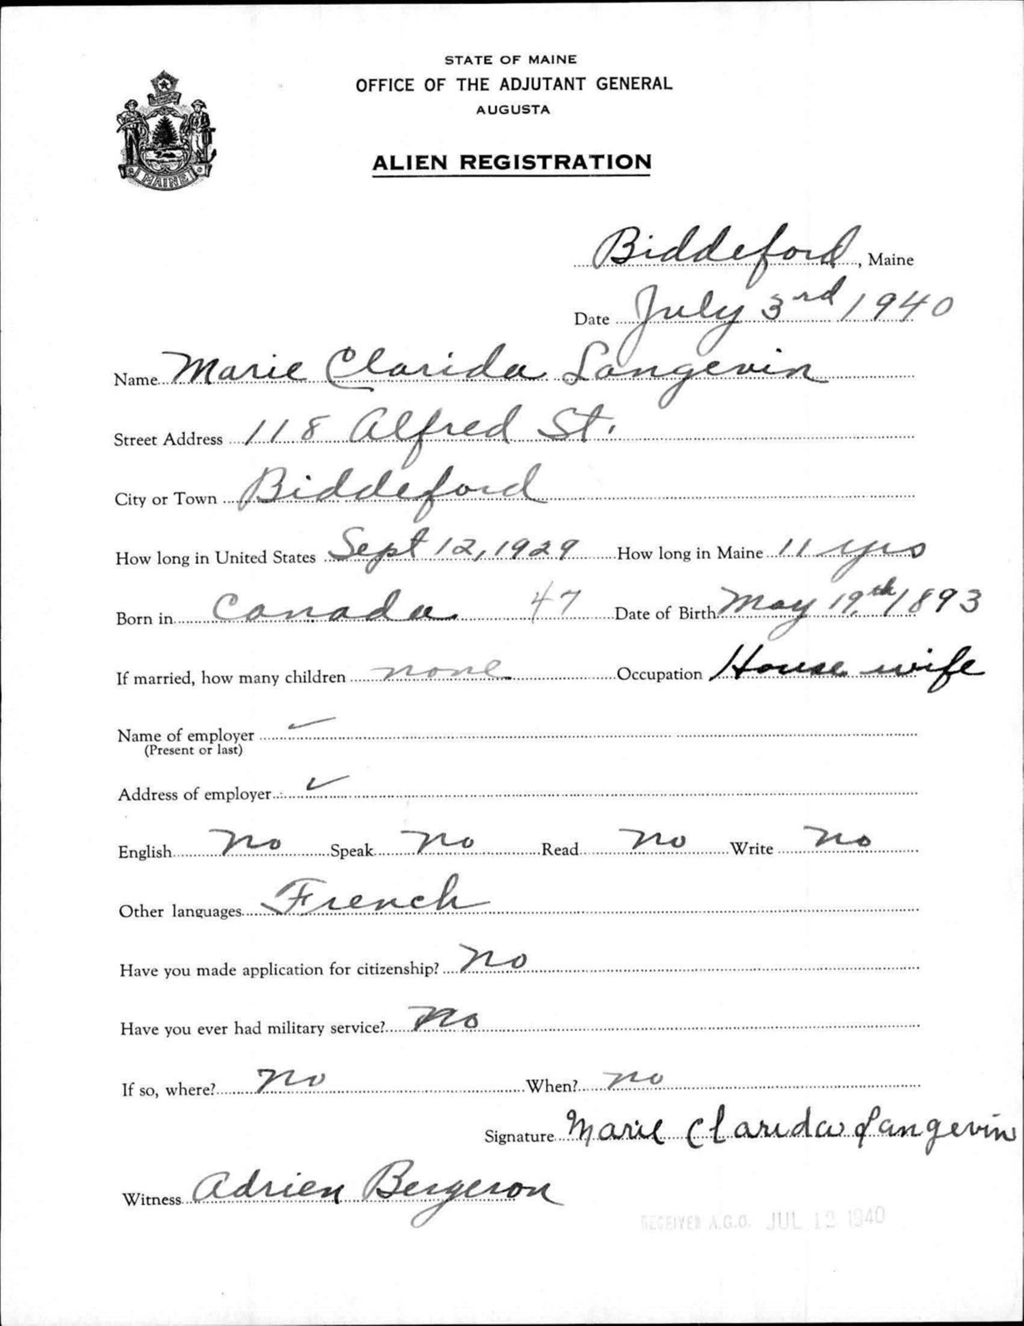 STATE OF MAINE
OFFICE OF THE ADJUTANT GENERAL
AUGUSTA
ALIEN REGISTRATION
MAINE
Biddeford, Maine
Date July 3rd 1940
Name Marie Clarida Langevin
Street Address 118 Alfred St.
City or Town Biddeford
How long in United States Sept 12, 1929 How long in Maine 11 yrs
Born in Canada 47 Date of Birth May 19th 1893
If married, how many children none Occupation House wife
Name of employer ✓
(Present or last)
Address of employer ✓
English No Speak No Read No Write No
Other languages French
Have you made application for citizenship? No
Have you ever had military service? No
If so, where? No When? no
Signature Marie Clarida Langevin
Witness Adrien Bergeron
RECEIVED A.G.O. JUL 12 1940